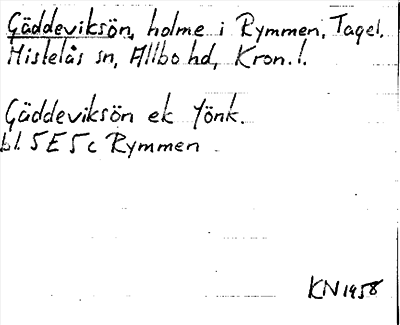 Gäddeviksön, holme i Rymmen, Tagel,
Mistelås sn, Allbo hd, Kron. l.
Gäddeviksön ek Jönk.
bl. 5E5c Rymmen
KN 1958